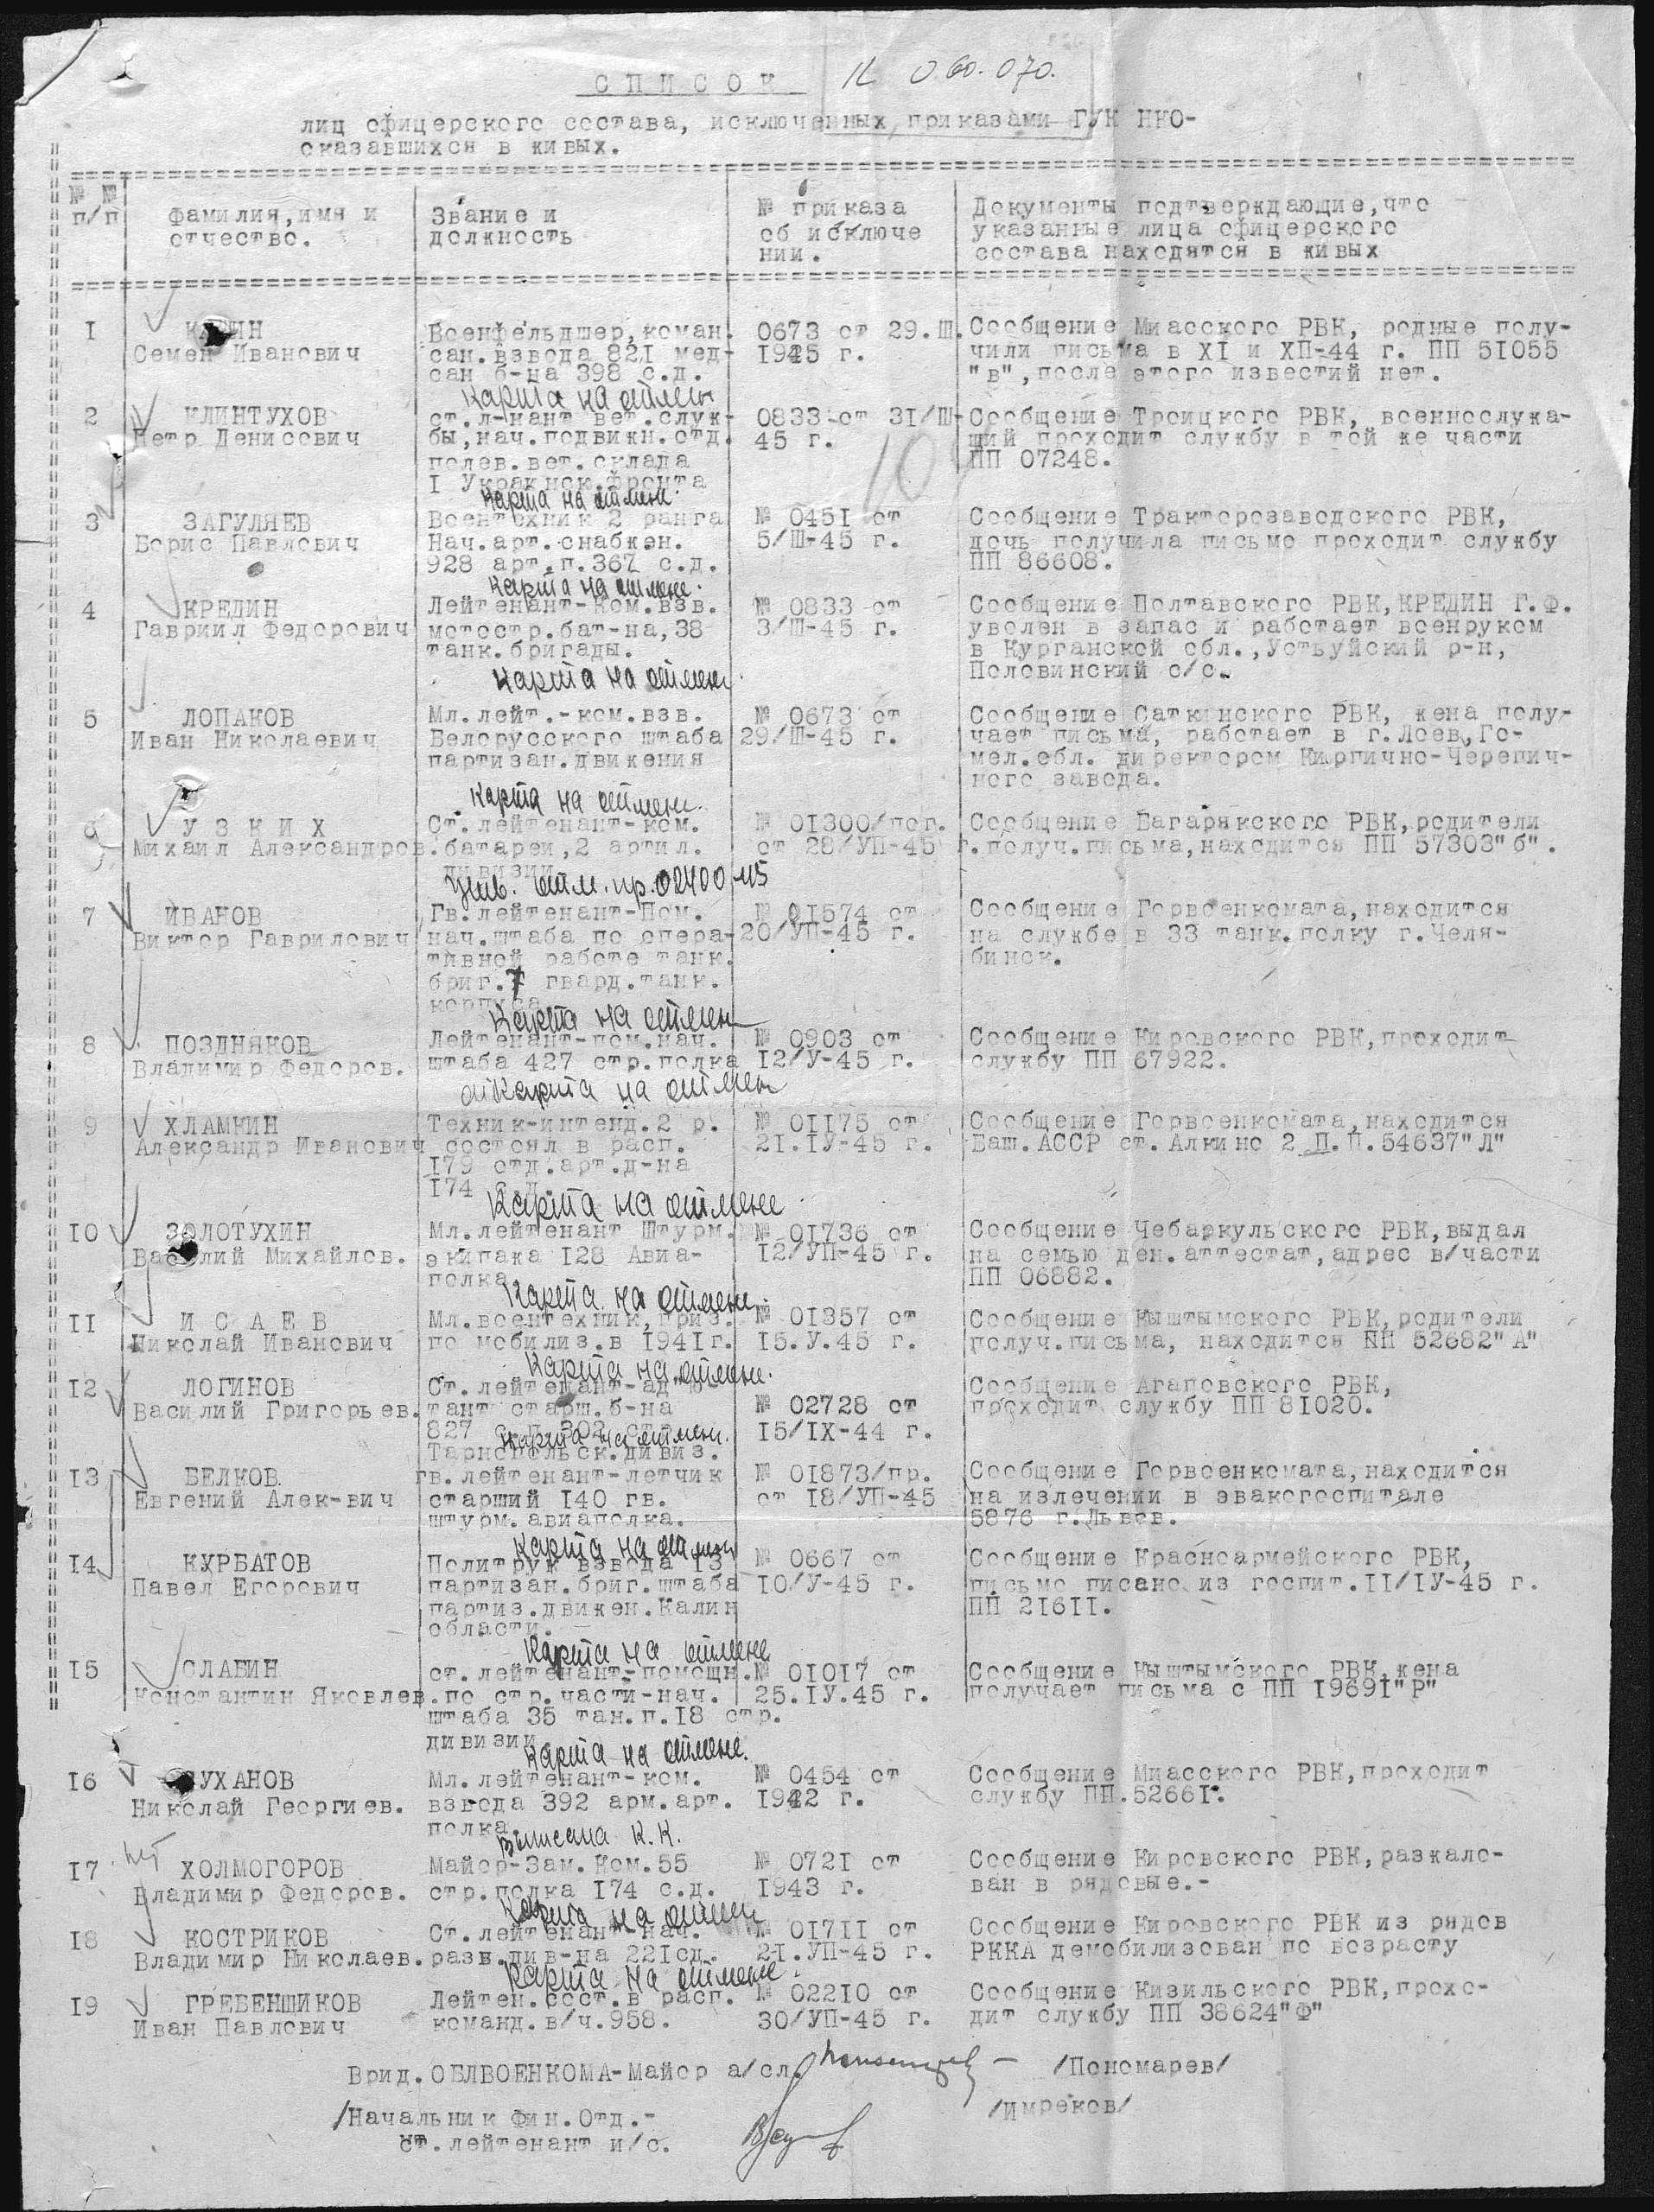 СПИСОК
лиц офицерского состава, исключенных приказами ГУК НКО-
оказавшихся в живых.
№ №
п/п
Фамилия, имя и
отчество.
Звание и
должность
№ приказа
об исключе
нии.
Документы подтверждающие, что
указанные лица офицерского
состава находятся в живых
1
Семен Иванович
Военфельдшер, коман.
сан. взвода 821 мед-
сан б-на 398 с.д.
Карта на отмен
0673 от 29.Ш.
1945 г.
Сообщение Миасского РВК, родные полу-
чили письма в XI и ХП-44 г. ПП 51055
"в", после этого известий нет.
2
КЛИНТУХОВ
Петр Денисович
ст. л-нант вет. служ-
бы, нач. подвижн. отд.
полев. вет. склада
I Украинск. фронта
Карта на отмене.
0833-от 31/Ш-
45 г.
Сообщение Троицкого РВК, военнослужа-
щий проходит службу в той же части
ПП 07248.
3
ЗАГУЛЯЕВ
Борис Павлович
Воентехник 2 ранга
Нач. арт. снабжен.
928 арт. п. 367 с.д.
Карта на отмене.
№ 0451 от
5/Ш-45 г.
Сообщение Тракторозаводского РВК,
дочь получила письмо проходит службу
ПП 86608.
4
КРЕДИН
Гавриил Федорович
Лейтенант-ком. взв.
мотостр. бат-на, 38
танк. бригады.
Карта на отмен.
№ 0833 от
3/Ш-45 г.
Сообщение Полтавского РВК, КРЕДИН Г.Ф.
уволен в запас и работает военруком
в Курганской обл., Устьуйский р-н,
Половинский с/с.
5
ЛОПАКОВ
Иван Николаевич
Мл. лейт.-ком. взв.
Белорусского штаба
партизан. движения
Карта на отмен.
№ 0673 от
29/Ш-45 г.
Сообщение Саткинского РВК, жена полу-
чает письма, работает в г. Лоев, Го-
мел. обл. директором Кирпично-Черепич-
ного завода.
6
УЗКИХ
Михаил Александров.
Ст. лейтенант-ком.
батареи, 2 артил.
дивизии
отм. пр. 02400-45
№ 01300/пог.
от 28/УП-45 г.
Сообщение Багарякского РВК, родители
получ. письма, находится ПП 57303"б".
7
ИВАНОВ
Виктор Гаврилович
Гв. лейтенант-Пом.
нач. штаба по опера-
тивной работе танк.
бриг. 7 гвард. танк.
корпуса
Карта на отмен
№ 01574 от
20/УП-45 г.
Сообщение Горвоенкомата, находится
на службе в 33 танк. полку г. Челя-
бинск.
8
ПОЗДНЯКОВ
Владимир Федоров.
Лейтенант-пом. нач.
штаба 427 стр. полка
Карта на отмен
№ 0903 от
12/У-45 г.
Сообщение Кировского РВК, проходит
службу ПП 67922.
9
ХЛАМКИН
Александр Иванович
Техник-интенд. 2 р.
состоял в расп.
179 отд. арт. д-на
174 с.д.
Карта на отмене
№ 01175 от
21.IУ-45 г.
Сообщение Горвоенкомата, находится
Баш. АССР ст. Алкино 2 П.П. 54637"Л"
10
ЗОЛОТУХИН
Василий Михайлов.
Мл. лейтенант Штурм.
экипажа 128 Авиа-
полка
Карта на отмене.
№ 01736 от
12/УП-45 г.
Сообщение Чебаркульского РВК, выдал
на семью ден. аттестат, адрес в/части
ПП 06882.
11
ИСАЕВ
Николай Иванович
Мл. воентехник, приз.
по мобилиз. в 1941г.
Карта на отмене.
№ 01357 от
15.У.45 г.
Сообщение Кыштымского РВК, родители
получ. письма, находится ПП 52682"А"
12
ЛОГИНОВ
Василий Григорьев.
Ст. лейтенант-адъю-
тант старш. б-на
827 с.п. 302 стр.
Тарнопольск. дивиз.
Карта на отмен.
№ 02728 от
15/IX-44 г.
Сообщение Агаповского РВК,
проходит службу ПП 81020.
13
БЕЛКОВ
Евгений Алек-вич
гв. лейтенант-летчик
старший 140 гв.
штурм. авиаполка.
Карта на отмен
№ 01873/пр.
от 18/УП-45
Сообщение Горвоенкомата, находится
на излечении в эвакогоспитале
5876 г. Львов.
14
КУРБАТОВ
Павел Егорович
Политрук взвода 13
партизан. бриг. штаба
партиз. движен. Калин
области.
Карта на отмене
№ 0667 от
10/У-45 г.
Сообщение Красноармейского РВК,
письмо писано из госпит. II/IУ-45 г.
ПП 21611.
15
СЛАБИН
Константин Яковлев.
ст. лейтенант-помощн.
по стр. части-нач.
штаба 35 тан. п. 18 стр.
дивизии
Карта на отмене.
№ 01017 от
25.IУ.45 г.
Сообщение Кыштымского РВК, жена
получает письма с ПП 19691"Р"
16
СУХАНОВ
Николай Георгиев.
Мл. лейтенант-ком.
взвода 392 арм. арт.
полка
Выписана К.К.
№ 0454 от
1942 г.
Сообщение Миасского РВК, проходит
службу ПП. 52661.
17
ХОЛМОГОРОВ
Владимир Федоров.
Майор-Зам. Ком. 55
стр. полка 174 с.д.
Карта на отмен
№ 0721 от
1943 г.
Сообщение Кировского РВК, разжало-
ван в рядовые.-
18
КОСТРИКОВ
Владимир Николаев.
Ст. лейтенант-нач.
разв. див-на 221сд.
Карта на отмене.
№ 01711 от
21.УП-45 г.
Сообщение Кировского РВК из рядов
РККА демобилизован по возрасту
19
ГРЕБЕНЩИКОВ
Иван Павлович
Лейтен. сост. в расп.
команд. в/ч. 958.
№ 02210 от
30/УП-45 г.
Сообщение Кизильского РВК, прохо-
дит службу ПП 38624"Ф"
Врид. ОБЛВОЕНКОМА-Майор а/сл. /Пономарев/
/Начальник Фин. Отд.- /Имреков/
ст. лейтенант и/с.